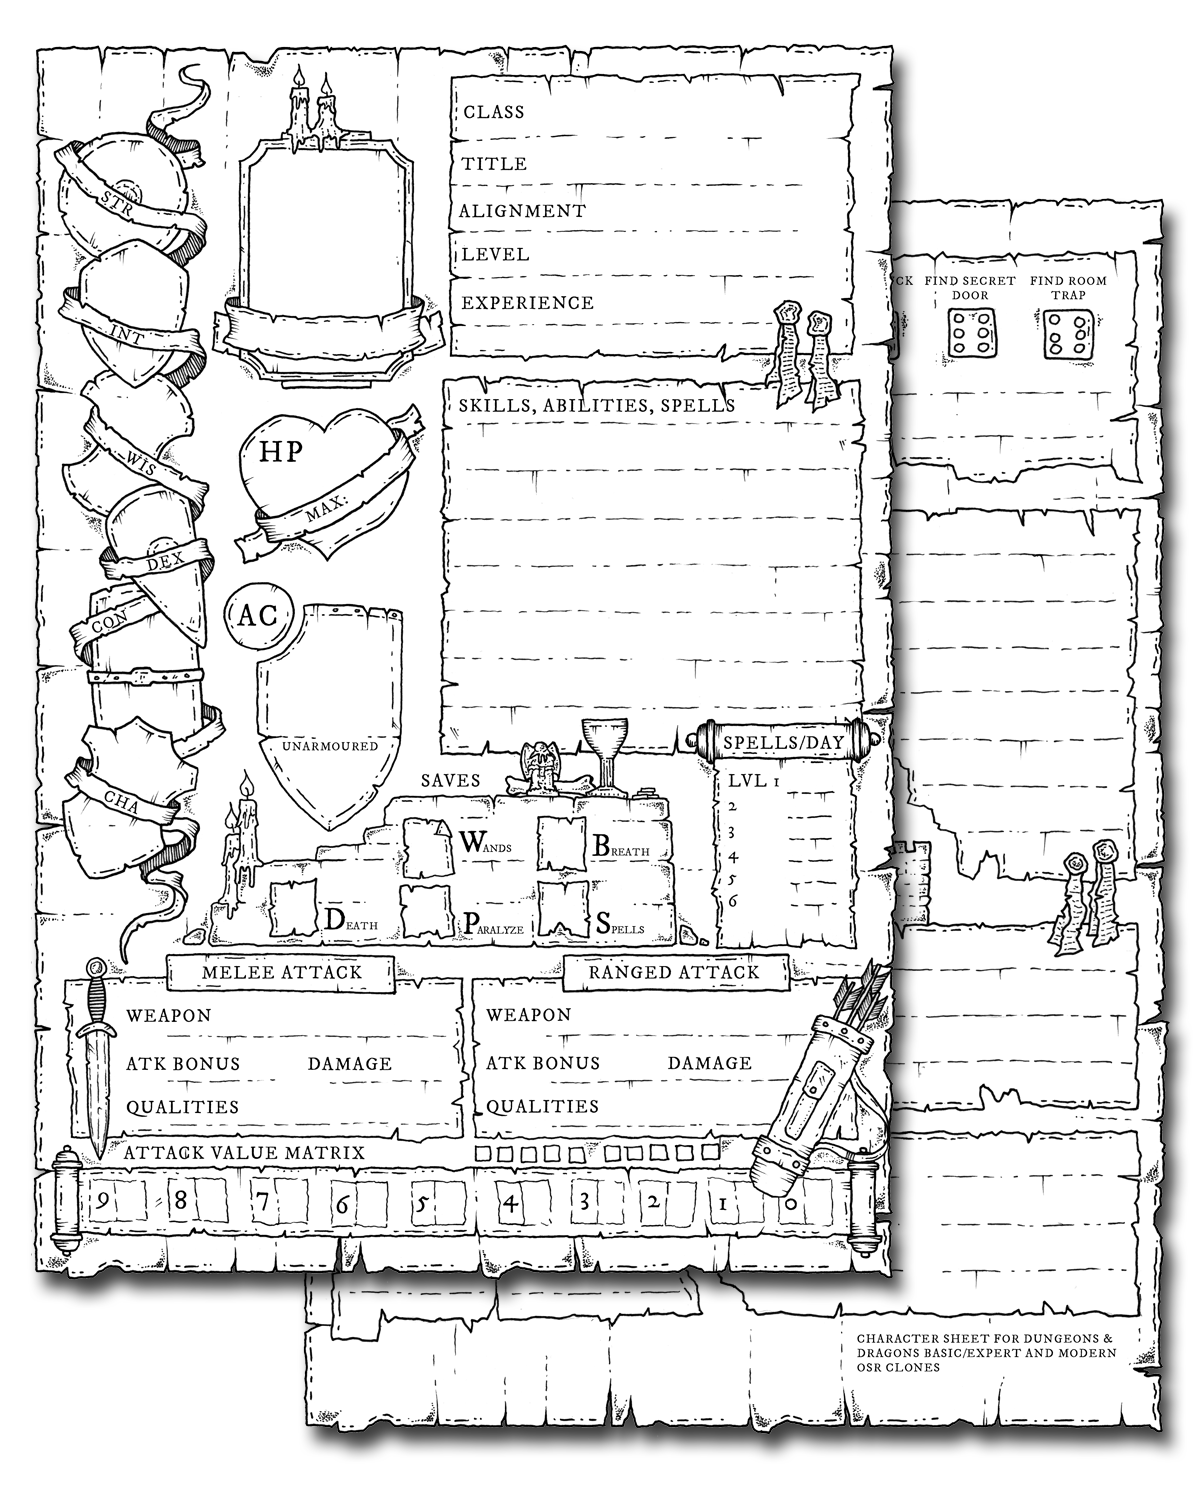 CLASS
TITLE
ALIGNMENT
LEVEL
EXPERIENCE
STR
INT
WIS
DEX
CON
CHA
HP
MAX:
AC
UNARMOURED
SKILLS, ABILITIES, SPELLS
SPELLS/DAY
LVL 1
2
3
4
5
6
SAVES
WANDS
BREATH
DEATH
PARALYZE
SPELLS
MELEE ATTACK
WEAPON
ATK BONUS DAMAGE
QUALITIES
RANGED ATTACK
WEAPON
ATK BONUS DAMAGE
QUALITIES
ATTACK VALUE MATRIX
9 8 7 6 5 4 3 2 1 0
FIND SECRET
DOOR
FIND ROOM
TRAP
CHARACTER SHEET FOR DUNGEONS &
DRAGONS BASIC/EXPERT AND MODERN
OSR CLONES